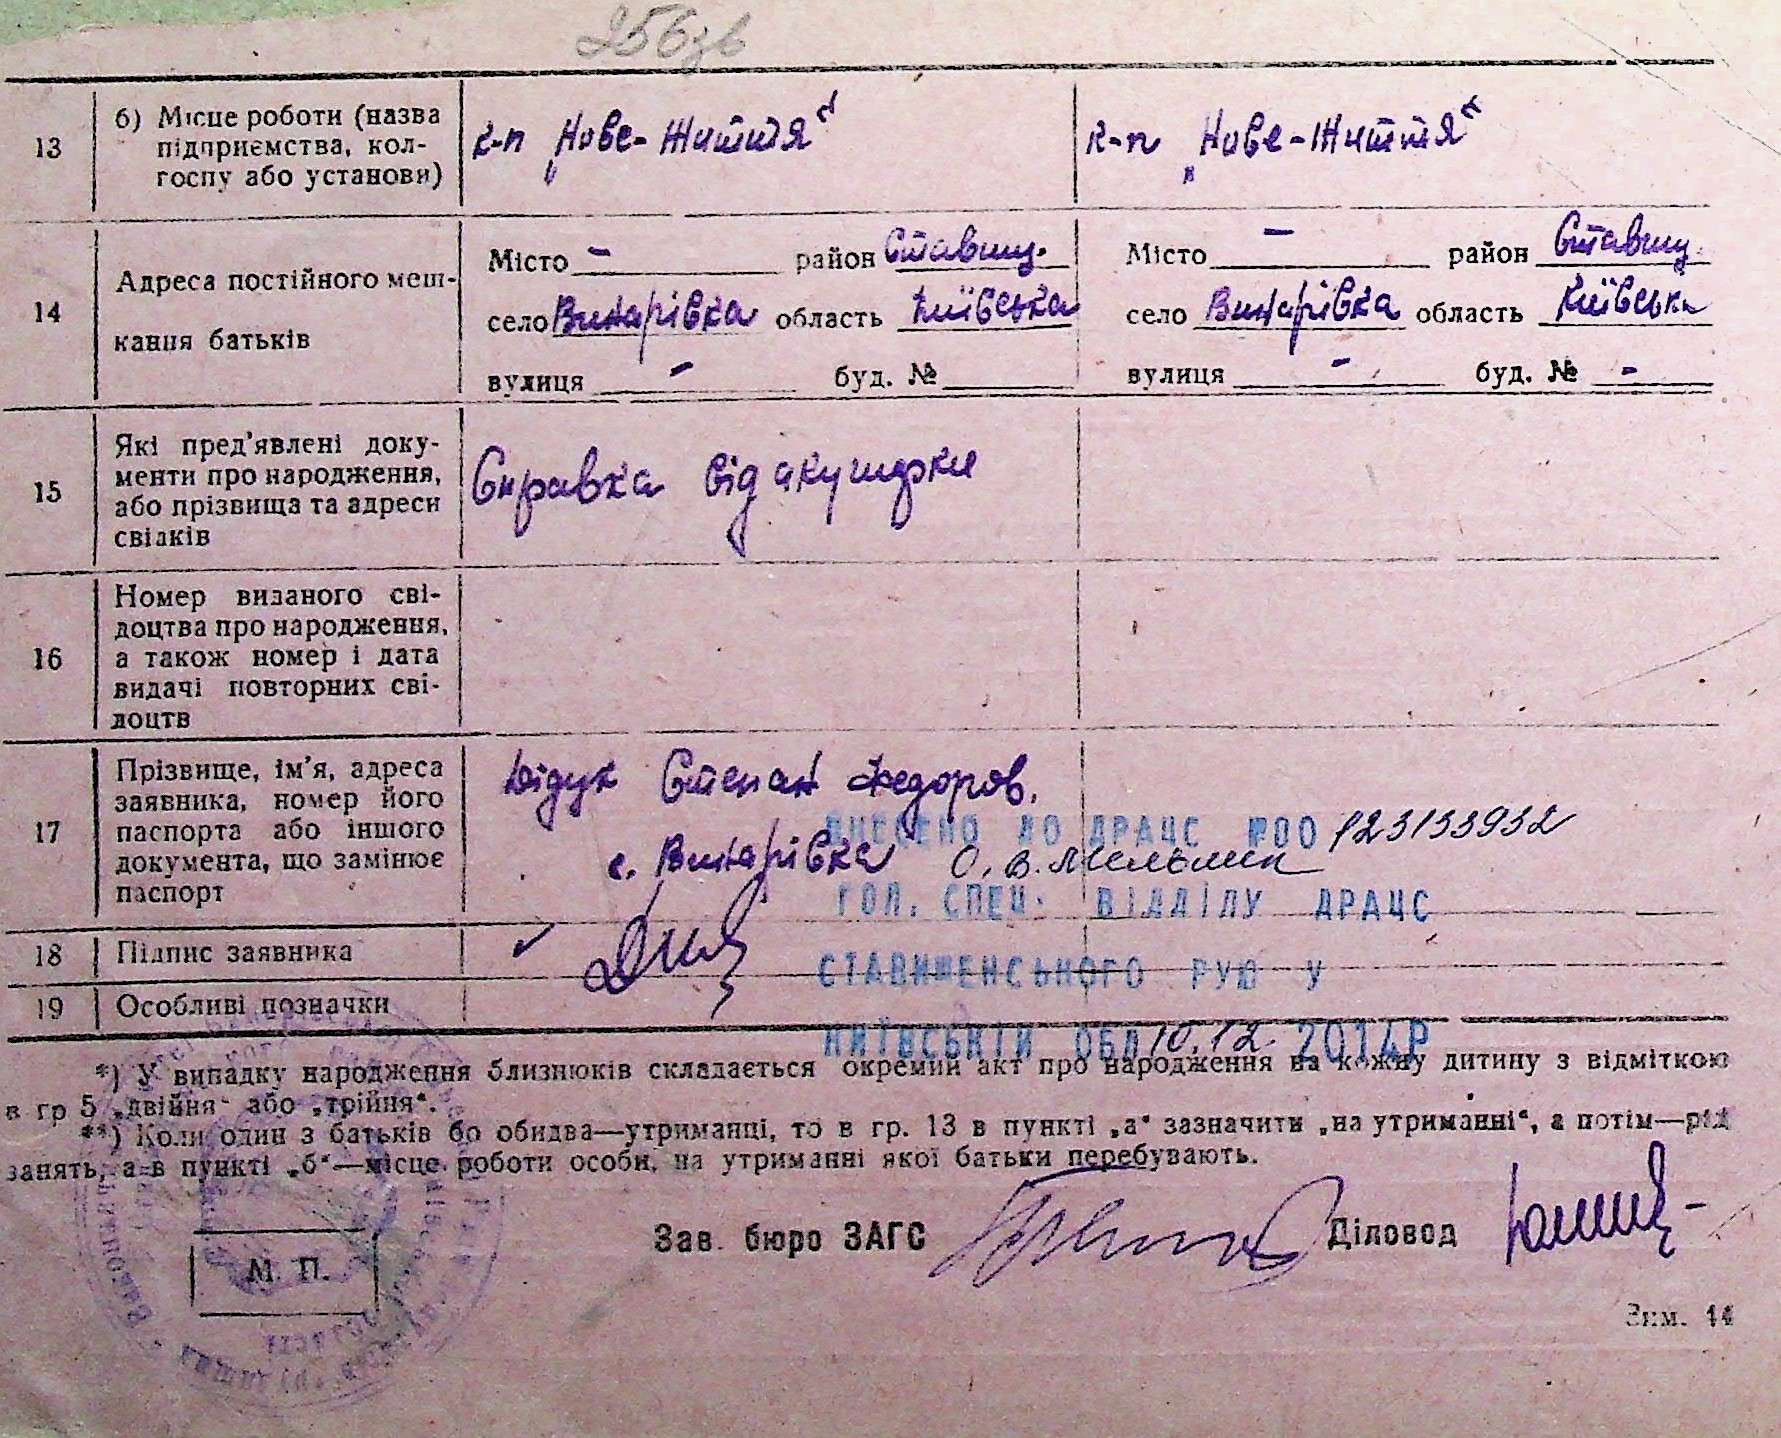 256зв
13
б) Місце роботи (назва
підприємства, кол-
госпу або установи)
к-п „Нове-Життя“
к-п „Нове-Життя“
14
Адреса постійного меш-
кання батьків
Місто – район Ставищ.
село Винарівка область Київська
вулиця – буд. №
Місто – район Ставищ.
село Винарівка область Київська
вулиця – буд. № –
15
Які пред'явлені доку-
менти про народження,
або прізвища та адреси
свідків
Справка від акушерки
16
Номер виданого сві-
доцтва про народження,
а також номер і дата
видачі повторних сві-
доцтв
17
Прізвище, ім'я, адреса
заявника, номер його
паспорта або іншого
документа, що замінює
паспорт
Дідук Степан Федоров.
с. Винарівка
ВНЕСЕНО ДО ДРАЦС №00123133932
О. В. Мельник
ГОЛ. СПЕЦ. ВІДДІЛУ ДРАЦС
СТАВИЩЕНСЬКОГО РУЮ У
КИЇВСЬКІЙ ОБЛ 10.12. 2014Р
18
Підпис заявника
19
Особливі позначки
*) У випадку народження близнюків складається окремий акт про народження на кожну дитину з відміткою
в гр 5 „двійня“ або „трійня“.
**) Коли один з батьків бо обидва—утриманці, то в гр. 13 в пункті „а“ зазначити „на утриманні“, а потім—рід
занять, а в пункті „б“—місце роботи особи, на утриманні якої батьки перебувають.
Зав. бюро ЗАГС
Діловод
М. П.
Зим. 14